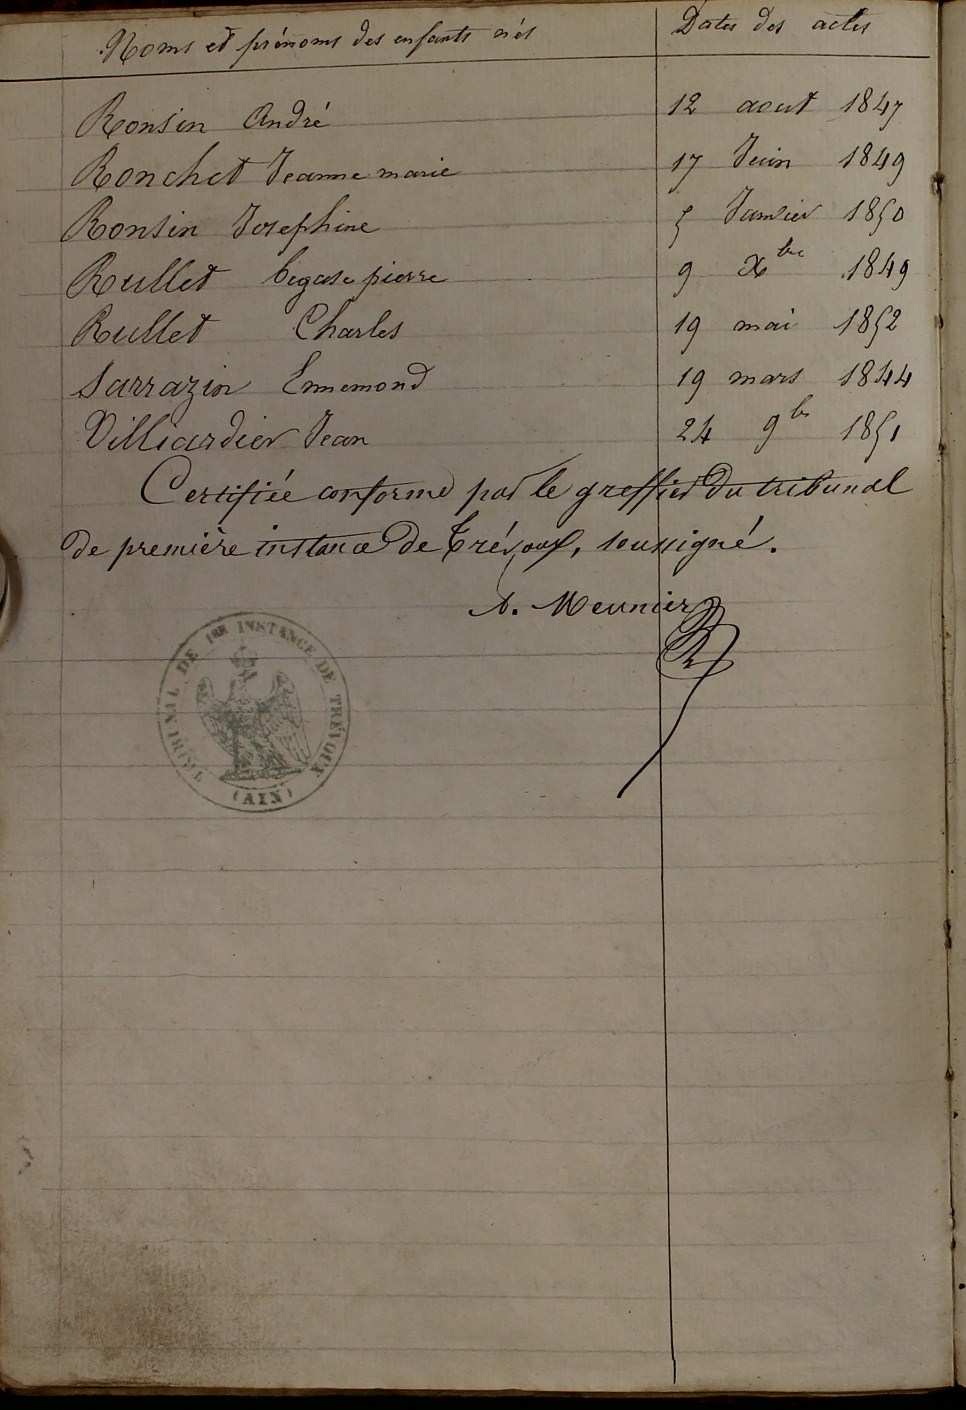 Noms et prénoms des enfants nés Dates des actes
Ronsin André 12 aout 1847
Ronchet Jeanne marie 17 Juin 1849
Ronsin Josephine 5 Janvier 1850
Rullet pierre 9 Xbre 1849
Rullet Charles 19 mai 1852
Sarrazin Ennemond 19 mars 1844
Villiardier Jean 24 9bre 1851
Certifiée conforme par le greffier du tribunal
de première instance de Trévoux, soussigné.
A. Meunier
TRIBUNAL DE 1ER INSTANCE DE TREVOUX
(AIN)